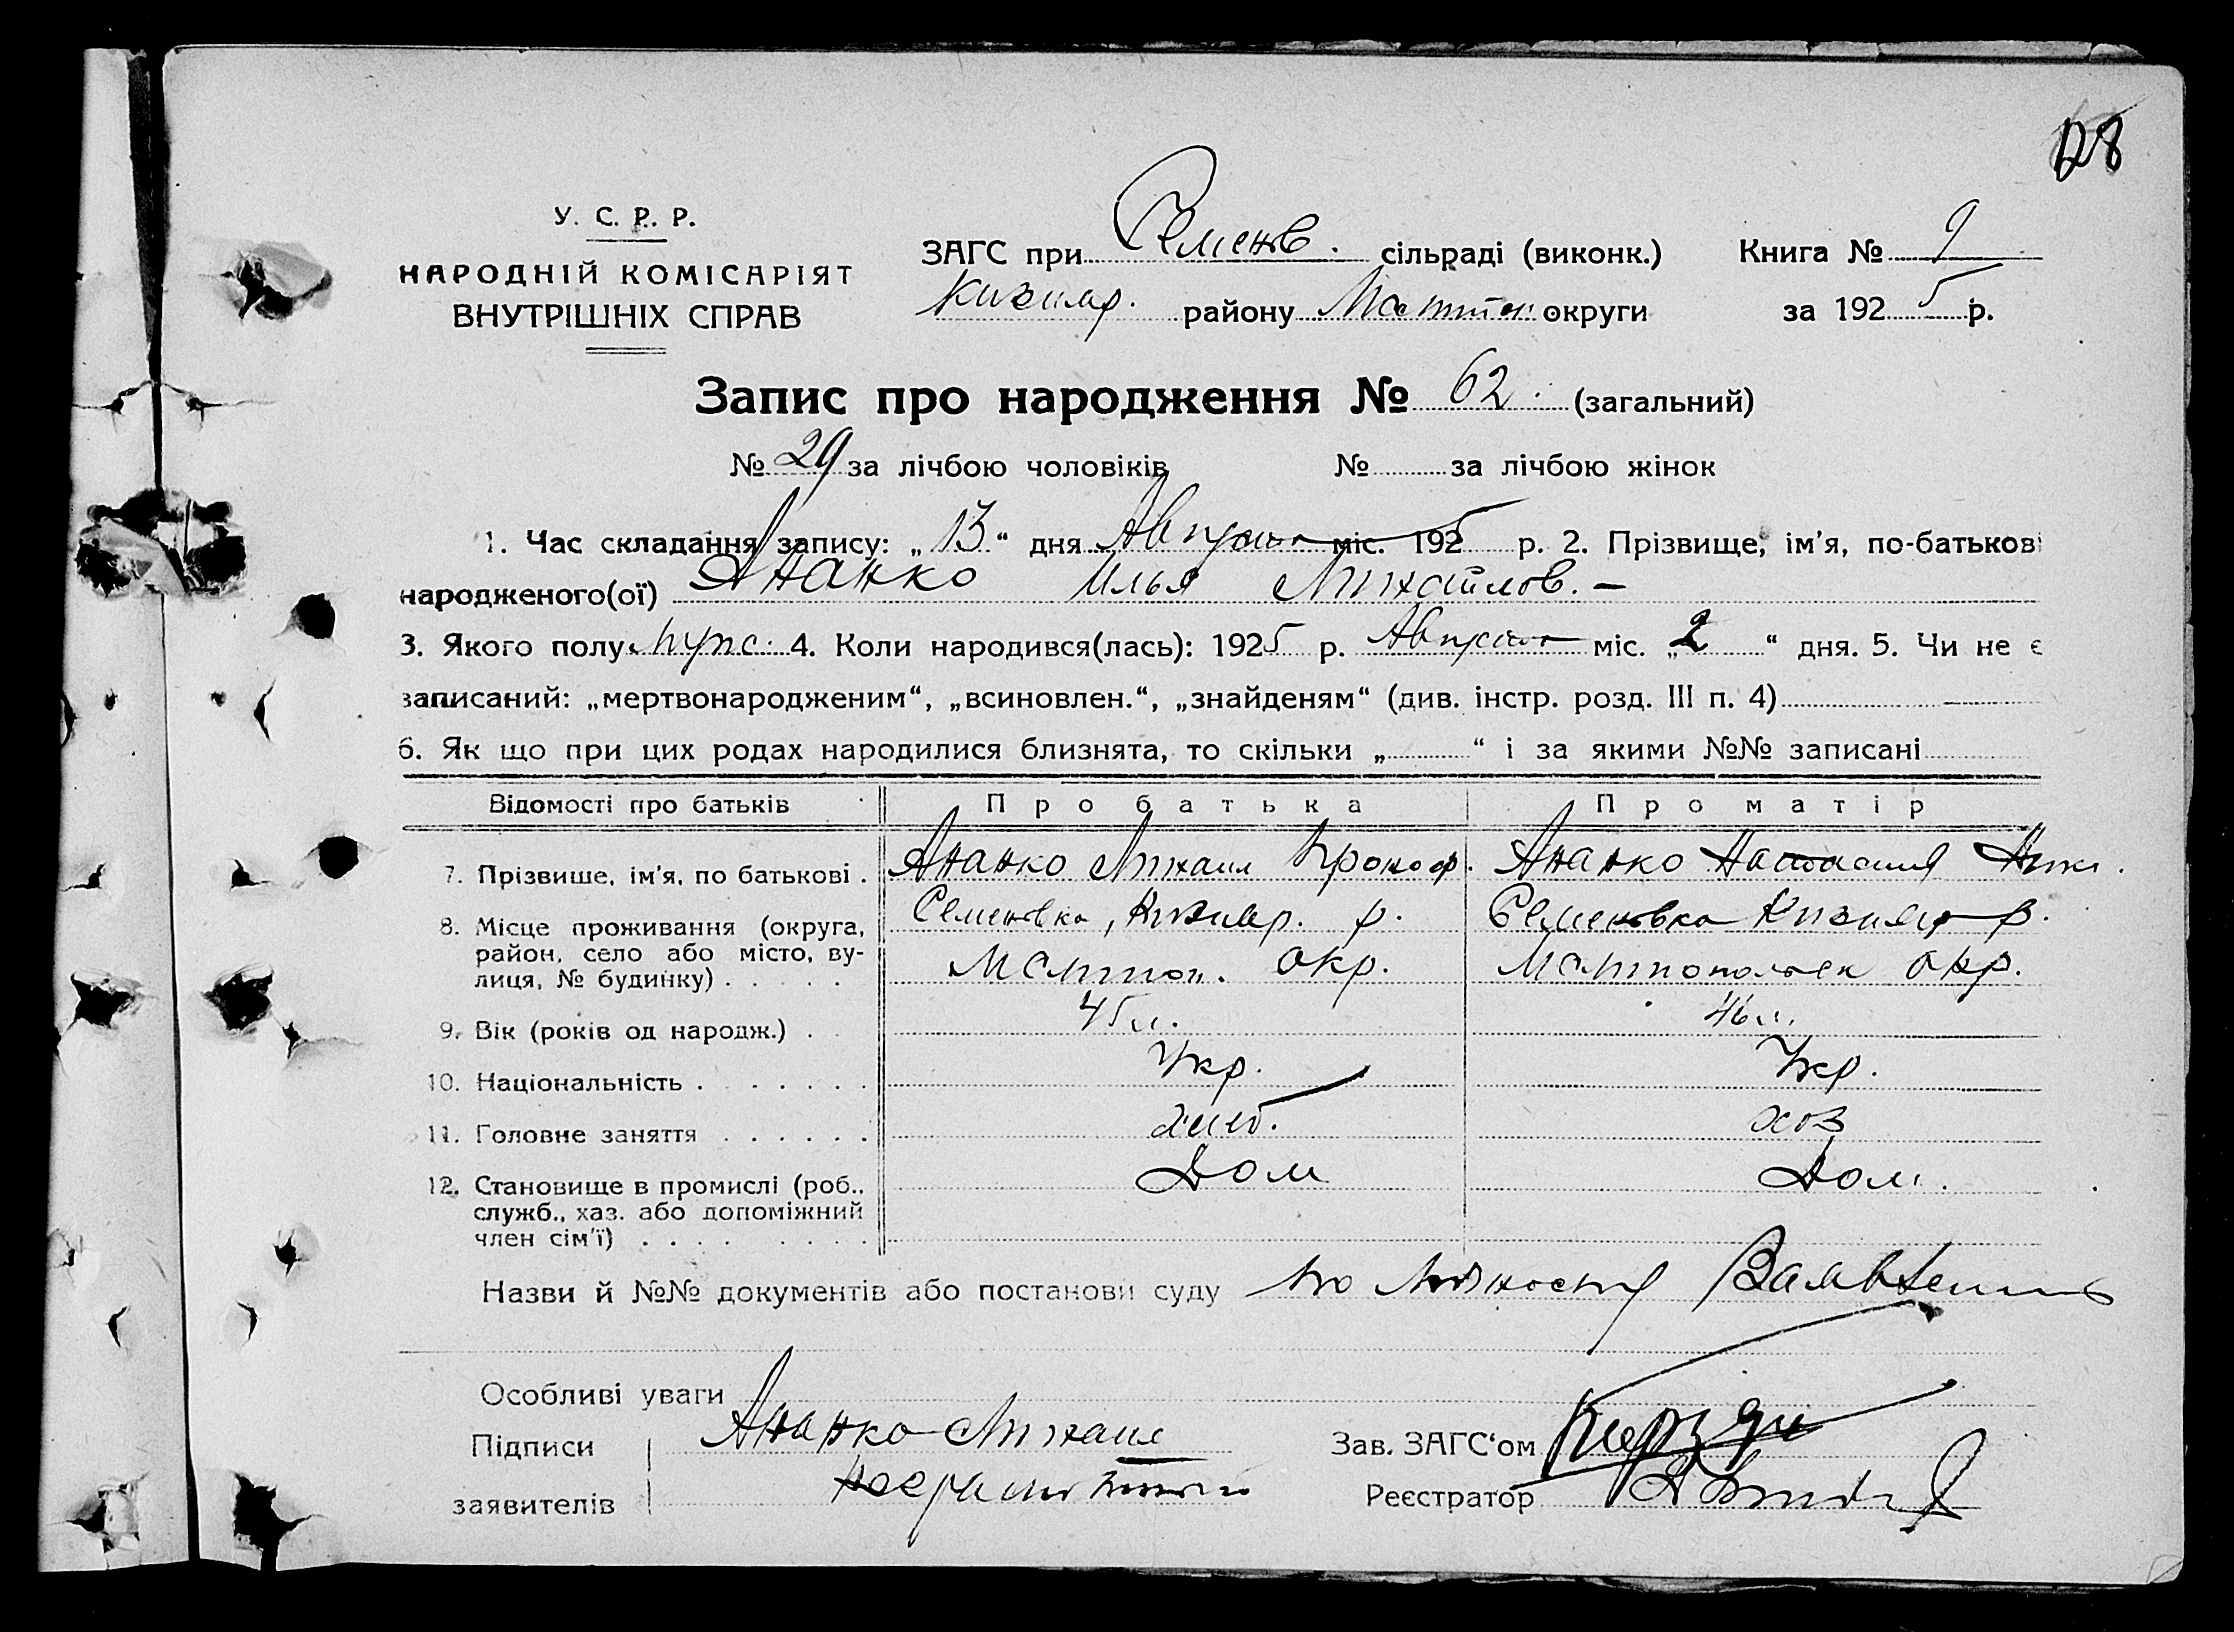 128
У. С. Р. Р.
НАРОДНІЙ КОМІСАРІЯТ
ВНУТРІШНІХ СПРАВ
ЗАГС при Семенов. сільраді (виконк.) Книга №
району округи за 1925 р.
Запис про народження № 62. (загальний)
№ 29 за лічбою чоловіків № за лічбою жінок
1. Час складання запису: „13“ дня Августа міс. 1925 р. 2. Прізвище, ім'я, по-батькові
народженого(ої) Ананко Илья Михайлов. —
3. Якого полу муж. 4. Коли народився(лась): 1925 р. Августа міс. „2“ дня. 5. Чи не є
записаний: „мертвонародженим“, „всиновлен.“, „знайденям“ (див. інстр. розд. III п. 4)
6. Як що при цих родах народилися близнята, то скільки „ “ і за якими №№ записані
Відомості про батьків Про батька Про матір
7. Прізвише, ім'я, по батькові . Ананко Михаил Прокоф. Ананко Настасия
8. Місце проживання (округа, район, село або місто, вулиця, № будинку) . . . . . Семеновка, Кизияр. р. Семеновка Кизияр р.
Мелитоп. окр. Мелитопольск окр.
9. Вік (років од народж.) . 45 л. 46 л.
10. Національність . . . . . . . Укр. Укр.
11. Головне заняття . . . . . . хлеб. хоз
12. Становище в промислі (роб., служб., хаз. або допоміжний член сім'ї) . . . . . . . . Дом Дом.
Назви й №№ документів або постанови суду по личному Заявлению
Особливі уваги
Підписи Ананко Михаил Зав. ЗАГС‘ом
заявителів неграмотный Реєстратор